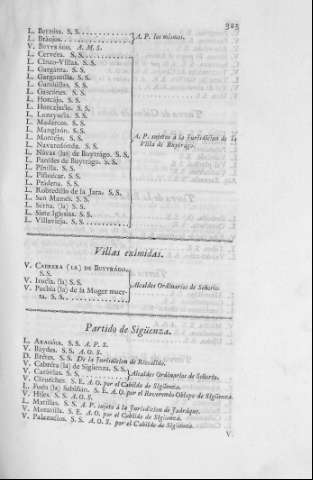 325
L. Berzosa. S. S.
L. Bráojos.
A. P. los mismos.
V. Buytrágo. A. M. S.
L. Cervéra. S. S.
L. Cinco-Villas. S. S.
L. Garganta. S. S.
L. Gargantilla. S. S.
L. Gandullas. S. S.
L. Gascónes. S. S.
L. Horcajo. S. S.
L. Horcajuelo. S. S.
L. Lozoyuela. S. S.
L. Madárcos. S. S.
L. Mangirón. S. S.
L. S. S.
L. Navarredónda. S. S.
L. Navas (las) de Buytrágo. S. S.
L. Parédes de Buytrágo. S. S.
L. Pinilla. S. S.
L. Piñuécar. S. S.
L. Prádena. S. S.
L. Robledillo de la Jara. S. S.
L. San Mamés. S. S.
L. Serna. (la) S. S.
L. Siete Iglesias. S. S.
L. Villavieja. S. S.
A. P. sujetos á la Jurisdicion de la
Villa de Buytrago.
Villas eximidas.
V. Cabrera (la) de Buytráno.
S. S.
V. (la) S. S.
V. Puebla (la) de la Muger muer-
ta. S. S.
Alcaldes Ordinarios de Señorío.
Partido de Sigüenza.
L. S. S. A. P. S.
V. Baydes. S. S. A. O. S.
D. S. S. De la Jurisdicion de
V. Cabréra (la) de Sigüenza. S. S.
V. S. S.
Alcaldes Ordinarios de Señorío.
V. S. E. A. O. por el Cabildo de Sigüenza.
L. (la) S. E. A. O. por el Reverendo Obispo de Sigüenza.
V. S. S. A. O. S.
L. Matillas. S. S. A. P. sujeto á la Jurisdicion de Jadráque.
V. S. E. A. O. por el Cabildo de Sigüenza.
V. Palazuelos. S. S. A. O. S. por el Cabildo de Sigüenza.
V.